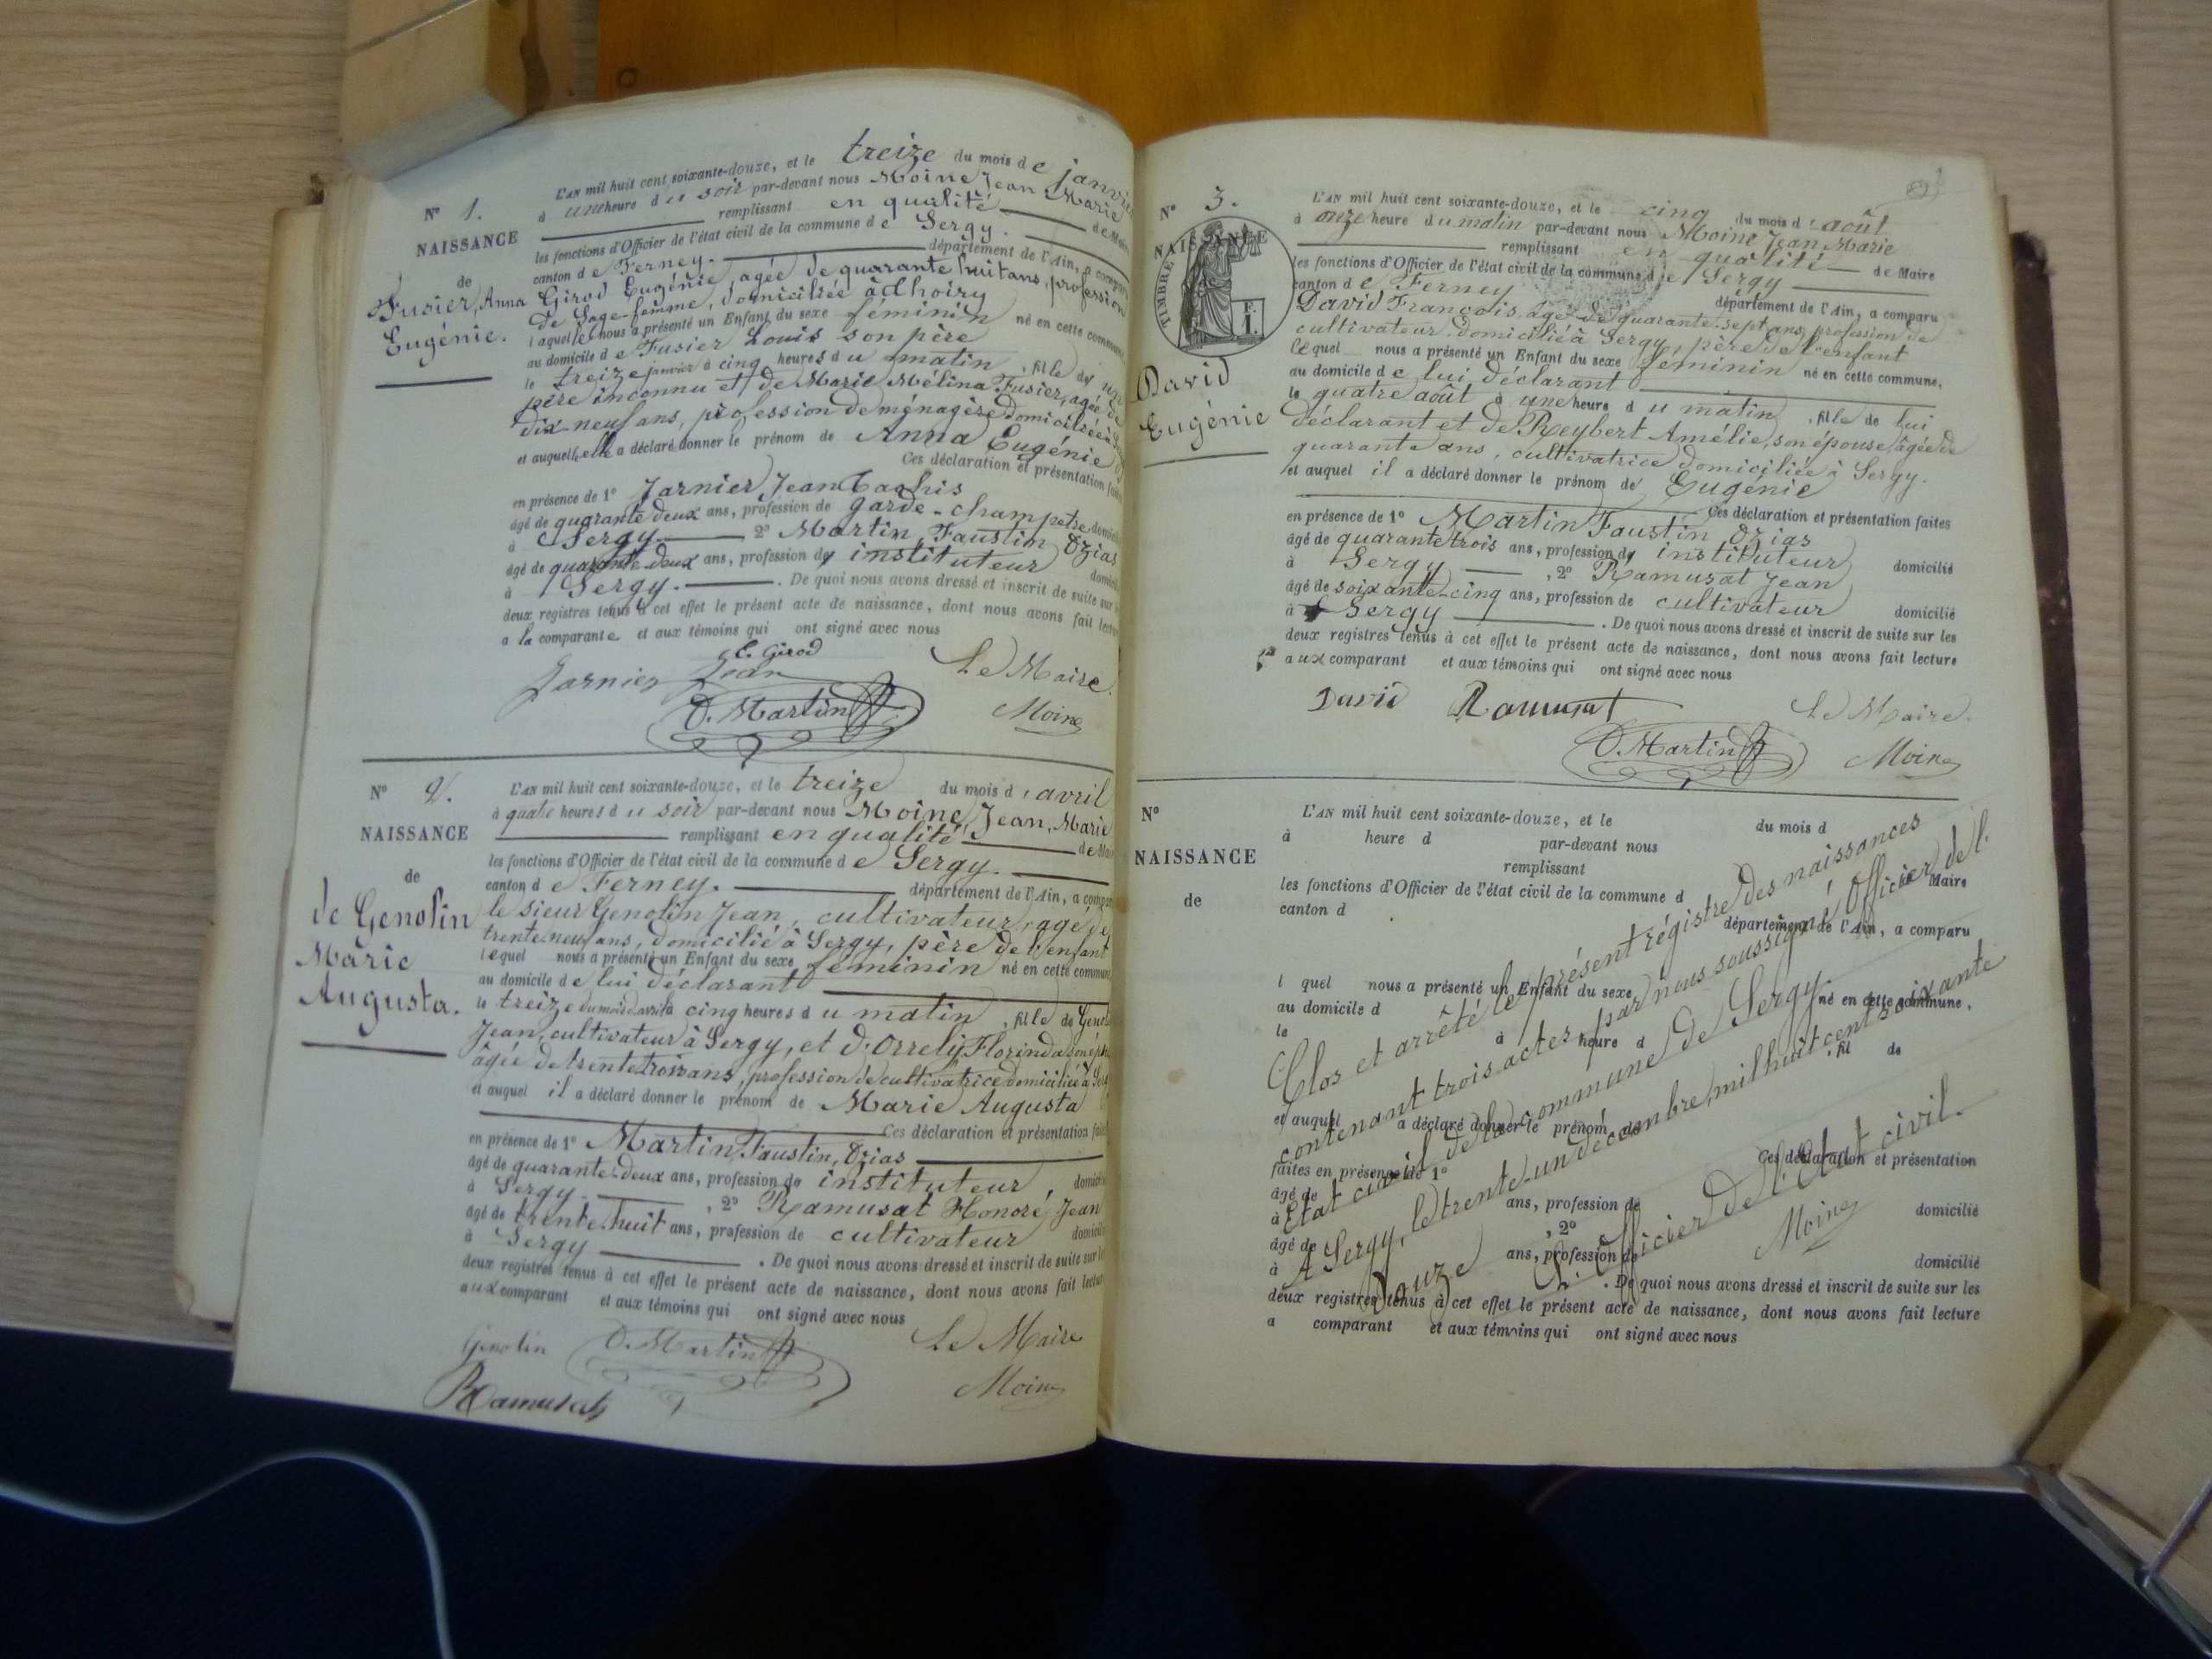 L'AN mil huit cent soixante-douze, et le treize du mois de janvier
N° 1.
à une heure du soir par-devant nous Moine Jean Marie
remplissant en qualité de Maire
NAISSANCE
les fonctions d'Officier de l'état civil de la commune de Sergy.
canton de Ferney. département de l'Ain, a comparu
de
Fusier, Anna
Eugénie.
Girod Eugénie, agée de quarante huit ans, profession
de Sage-femme, domiciliée à Thoiry
laquelle nous a présenté un Enfant du sexe féminin né en cette commune
au domicile de Fusier Louis son père
le treize janvier à cinq heures du matin, fille de
père inconnu et de Marie Mélina Fusier, agée de
dix-neuf ans, profession de ménagère domiciliée à
et auquel elle a déclaré donner le prénom de Anna Eugénie
Ces déclaration et présentation faites
en présence de 1° Jarnier Jean
âgé de quarante deux ans, profession de garde-champêtre domicilié
à Sergy. 2° Martin, Faustin Ozias
âgé de quarante-deux ans, profession de instituteur domicilié
à Sergy. . De quoi nous avons dressé et inscrit de suite sur
deux registres tenus à cet effet le présent acte de naissance, dont nous avons fait lecture
a la comparante et aux témoins qui ont signé avec nous
E. Girod
Jarnier Jean
Le Maire.
O. Martin
Moine
N° 2.
L'AN mil huit cent soixante-douze, et le treize du mois d'avril
à quatre heures du soir par-devant nous Moine, Jean, Marie
NAISSANCE
remplissant en qualité de Maire
les fonctions d'Officier de l'état civil de la commune de Sergy.
de
canton de Ferney. département de l'Ain, a comparu
de Genolin
Marie
Augusta.
le sieur Genolin Jean, cultivateur, agé de
trente neuf ans, domicilié à Sergy, père de l'enfant
lequel nous a présenté un Enfant du sexe féminin né en cette commune
au domicile de lui déclarant
le treize du mois d'avril à cinq heures du matin, fille de Genolin
Jean, cultivateur à Sergy, et d'Orrelij Florinda son
âgée de trente trois ans, profession de cultivatrice domiciliée à
et auquel il a déclaré donner le prénom de Marie Augusta
Ces déclaration et présentation faites
en présence de 1° Martin Faustin, Ozias
âgé de quarante-deux ans, profession de instituteur, domicilié
à Sergy. , 2° Ramusat Honoré, Jean
âgé de trente-huit ans, profession de cultivateur domicilié
à Sergy . De quoi nous avons dressé et inscrit de suite sur
deux registres tenus à cet effet le présent acte de naissance, dont nous avons fait lecture
aux comparant et aux témoins qui ont signé avec nous
Genolin O. Martin Le Maire
Ramusat Moine
N° 3.
L'AN mil huit cent soixante-douze, et le cinq du mois d'août
à onze heure du matin par-devant nous Moine Jean Marie
NAISSANCE
remplissant en qualité de Maire
TIMBRE
F.
1.
de
les fonctions d'Officier de l'état civil de la commune de Sergy
canton de Ferney département de l'Ain, a comparu
David François, âgé de quarante-sept ans, profession de
cultivateur, domicilié à Sergy, père de l'enfant
lequel nous a présenté un Enfant du sexe féminin né en cette commune,
au domicile de lui déclarant
David
Eugénie
le quatre août à une heure du matin, fille de lui
déclarant et de Reybert Amélie, son épouse, âgée de
quarante ans, cultivatrice domiciliée à Sergy.
et auquel il a déclaré donner le prénom de Eugénie
Ces déclaration et présentation faites
en présence de 1° Martin Faustin, Ozias
âgé de quarante trois ans, profession de instituteur domicilié
à Sergy , 2° Ramusat Jean
âgé de soixante-cinq ans, profession de cultivateur domicilié
à Sergy . De quoi nous avons dressé et inscrit de suite sur les
deux registres tenus à cet effet le présent acte de naissance, dont nous avons fait lecture
aux comparant et aux témoins qui ont signé avec nous
David Ramusat Le Maire.
O. Martin Moine
N°
L'AN mil huit cent soixante-douze, et le du mois d
à heure d par-devant nous
NAISSANCE
remplissant
de
les fonctions d'Officier de l'état civil de la commune d Maire
canton d département de l'Ain, a comparu
l quel nous a présenté un Enfant du sexe né en cette commune,
au domicile d
le à heure d , fil de
et auquel a déclaré donner le prénom de
Ces déclaration et présentation
faites en présence de 1°
âgé de ans, profession de domicilié
à , 2°
âgé de ans, profession de domicilié
à . De quoi nous avons dressé et inscrit de suite sur les
deux registres tenus à cet effet le présent acte de naissance, dont nous avons fait lecture
a comparant et aux témoins qui ont signé avec nous
Clos et arrêté le présent régistre des naissances
contenant trois actes, par nous soussigné, Officier de l'
Etat civil de la commune de Sergy.
A Sergy, le trente-un décembre, mil huit cent soixante
Douze
L'Officier de l'Etat civil.
Moine